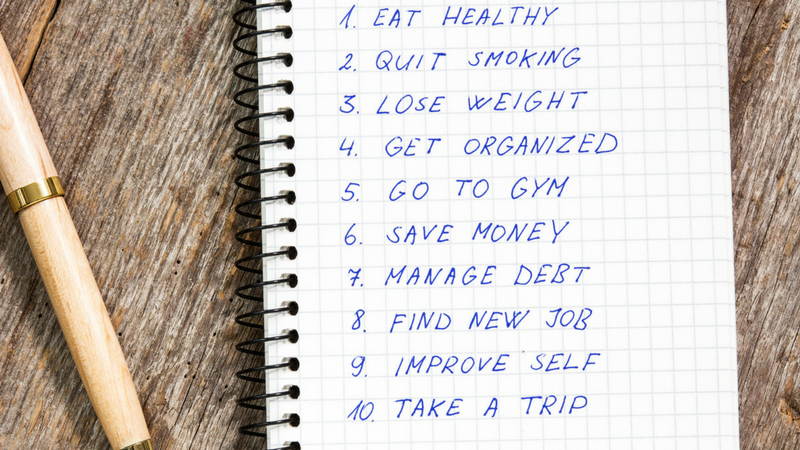 1. EAT HEALTHY
2. QUIT SMOKING
3. LOSE WEIGHT
4. GET ORGANIZED
5. GO TO GYM
6. SAVE MONEY
7. MANAGE DEBT
8. FIND NEW JOB
9. IMPROVE SELF
10. TAKE A TRIP